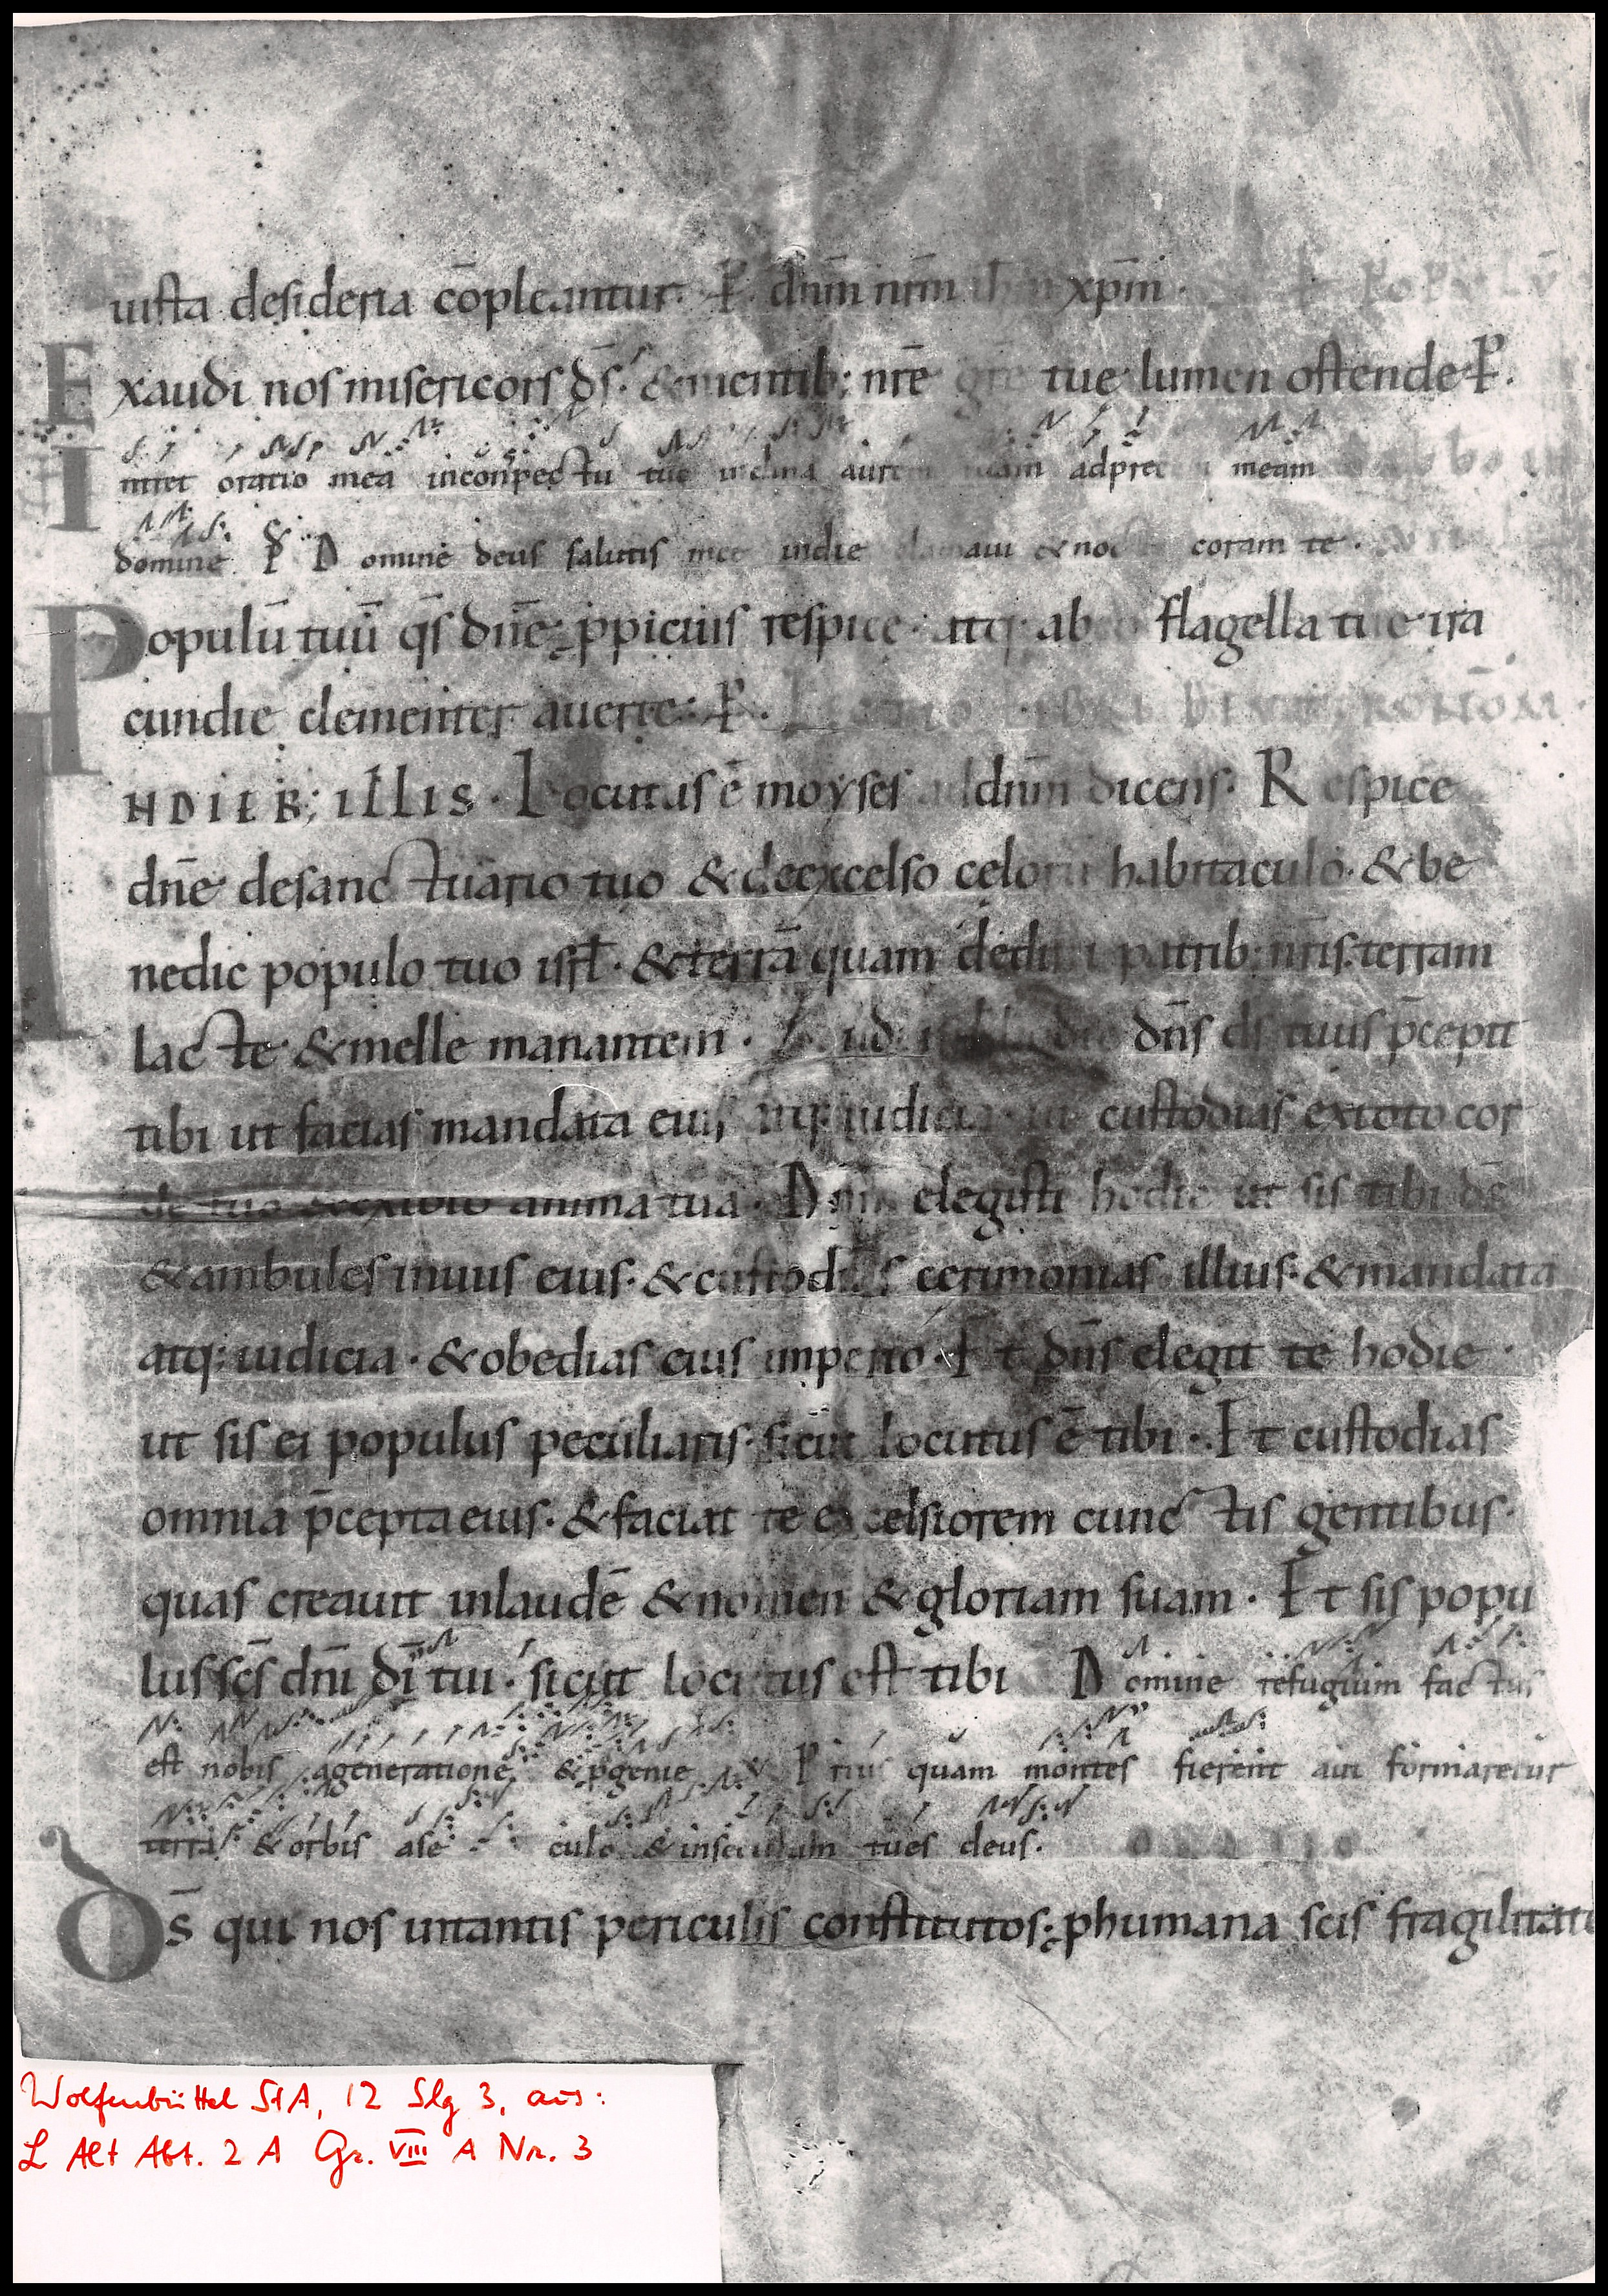 iusta desideria cōpleantur. P̱ dnm̄ nrm̄ xpm̄. POPULŪ
Exaudi nos misericors ds̄. & mentib; nrē grē tue lumen ostende P̱.
Intret oratio mea inconspectu tuo inclina aurem tuam adprecē meam
domine P Domine deus salutis mee indie clamaui & nocte coram te.
Populū tuū qs̄ dnē ppicius respice. atq; ab eo flagella tue ira
cundie clementer auerte. P̱. LECTIO LIBRI DEUTERONOM̄.
IN DIEB; ILLIS. Locutus ē moyses ad dnm̄ dicens. Respice
dnē desanctuario tuo & deexcelso celorū habitaculo. & be
nedic populo tuo isrł. & terrā quam dedisti patrib; nrīs. terram
lacte & melle manantem. dn̄s ds̄ tuus p̄cepit
tibi ut facias mandata eius atq; iudicia. ut custodias extoto cor
de tuo & extoto anima tua. Dnm̄ elegisti hodie ut sis tibi dē
& ambules inuiis eius. & custodias cerimonias illius. & mandata
atq; iudicia. & obedias eius imperio. Et dn̄s elegit te hodie.
ut sis ei populus peculiaris. sicut locutus ē tibi. Et custodias
omnia p̄cepta eius. & faciat te excelsiorem cunctis gentibus.
quas creauit inlaudē & nomen & gloriam suam. Et sis popu
lus scs̄ dnī dī tui. sicut locutus est tibi Domine refugium factus
est nobis ageneratione & pgenie V Prius quam montes fierent aut formaretur
terra & orbis ase culo & inseculum tues deus. ORATIO
Ds̄ qui nos intantis periculis constitutos. phumana scis fragilitate
Wolfenbüttel StA, 12 Slg 3, aus:
L Alt Abt. 2 A Gr. VIII A Nr. 3